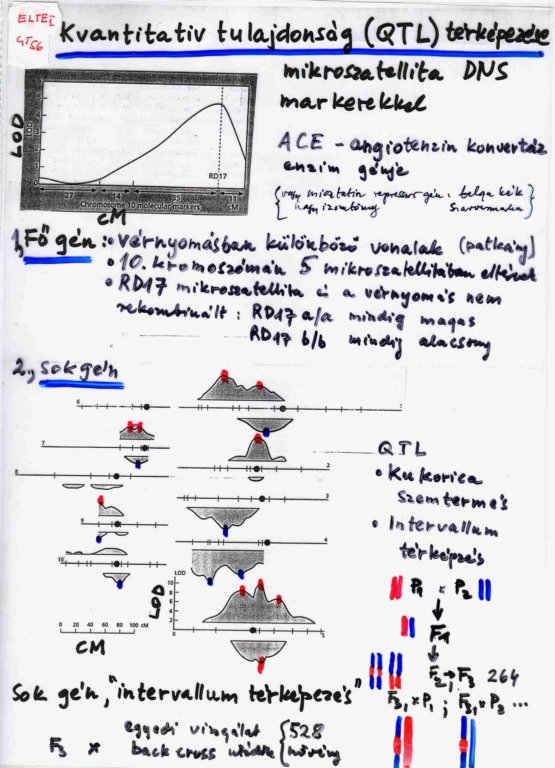 ELTE I
GT56
Kvantitatív tulajdonság (QTL) térképezése
mikroszatellita DNS
markerekkel
LOD
5
4
3
2
1
0
LOD
RD17
27 14 35 11
Chromosome 10 molecular markers cM
cM
ACE - angiotenzin konvertáz
enzim génje
(vagy miosztatin represszor gén: belga kék
nagy izomtömeg
1, Fő gén: • vérnyomásban különböző vonalak (patkány)
• 10. kromoszómán 5 mikroszatellitában eltérnek
• RD17 mikroszatellita és a vérnyomás nem
rekombinált: RD17 a/a mindig magas
RD17 b/b mindig alacsony
2, sok gén
6 1
7
8 2
3
9
4
10
LOD
LOD
10
8
6
4
2
0
5
0 20 40 60 80 100 cM
CM
QTL
• Kukorica
szemtermés
• Intervallum
térképezés
P1 x P2
F1
F2 → F3 264
F3,1 x P1 ; F3,1 x P2 ...
Sok gén, "intervallum térképezés"
F3 x egyedi vizsgálat { 528
back cross utódok növény